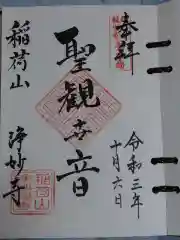 奉拝
令和三年
十月六日
聖観世音
稲荷山
浄妙寺